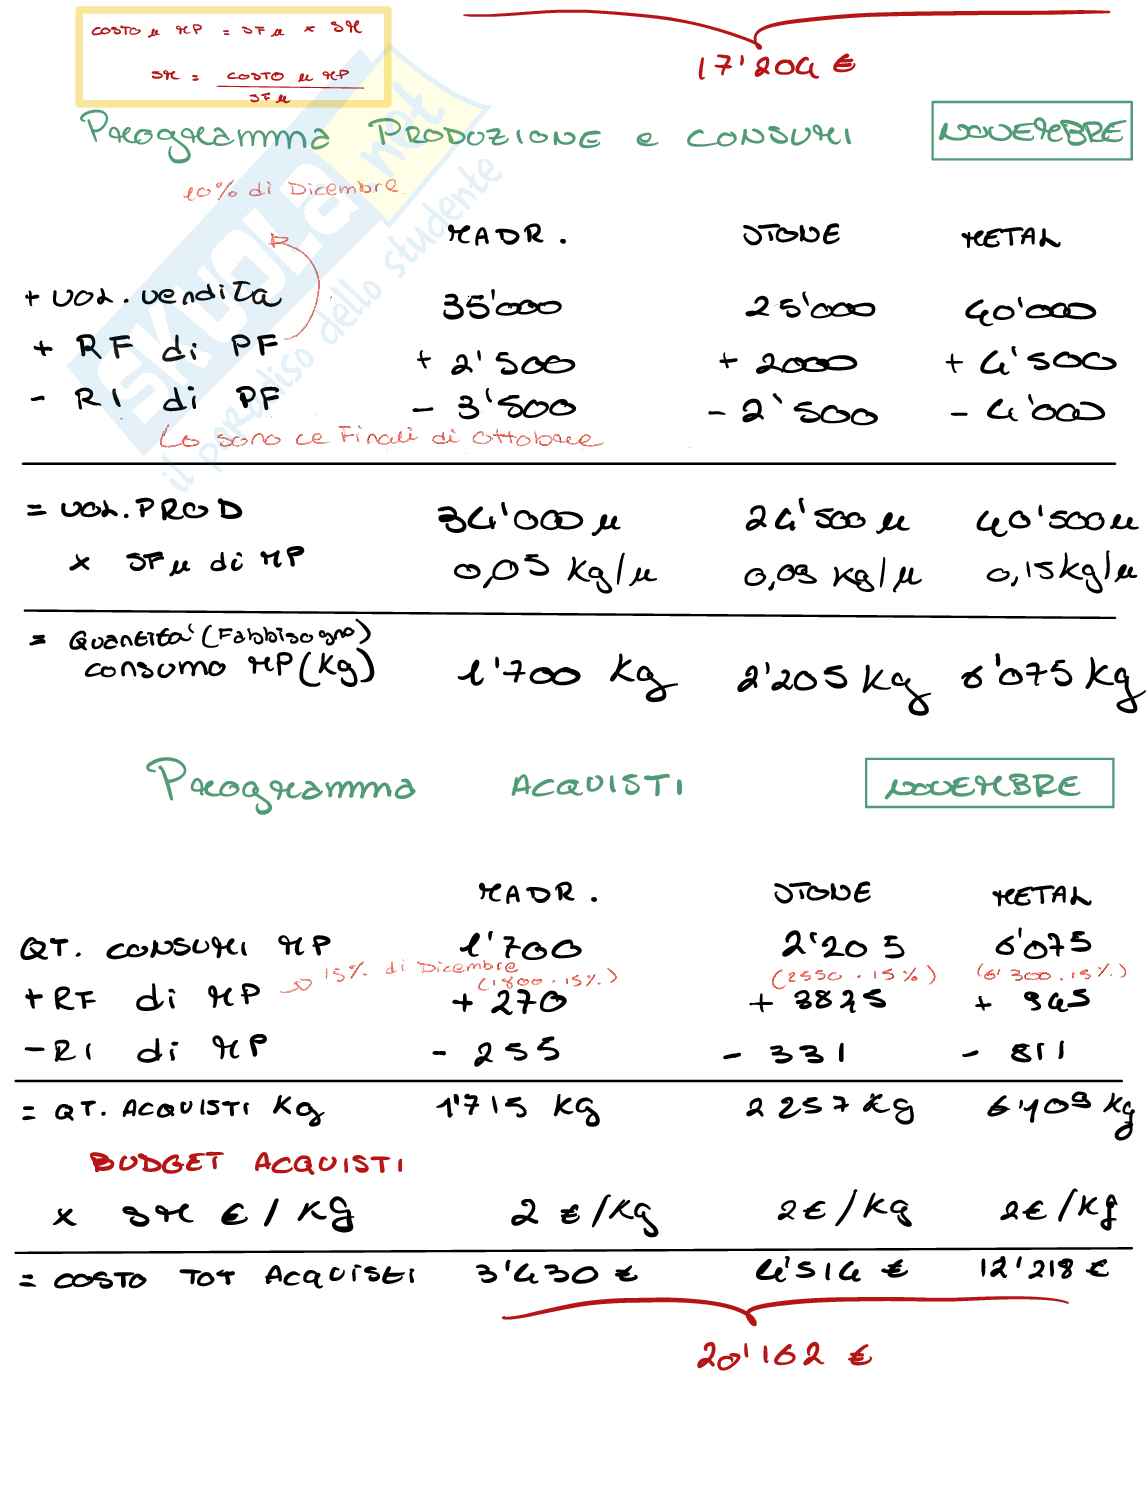 COSTO μ MP = SF μ x SM
SM = COSTO μ MP / SF μ
17'204 €
Programma PRODUZIONE e CONSUMI NOVEMBRE
10% di Dicembre
MADR. STONE METAL
+ VOL. vendita 35'000 25'000 40'000
+ RF di PF + 2'500 + 2000 + 4'500
- RI di PF - 3'500 - 2'500 - 4'000
Lo sono le Finali di Ottobre
= VOL. PROD 34'000 μ 24'500 μ 40'500 μ
x SF μ di MP 0,05 kg/μ 0,09 kg/μ 0,15 kg/μ
= Quantità (Fabbisogno)
consumo MP (Kg) 1'700 Kg 2'205 Kg 6'075 Kg
Programma ACQUISTI NOVEMBRE
MADR. STONE METAL
QT. CONSUMI MP 1'700 2'205 6'075
15% di Dicembre (1800 · 15%) (2550 · 15%) (6'300 · 15%)
+ RF di MP + 270 + 3825 + 945
- RI di MP - 255 - 331 - 811
= QT. ACQUISTI Kg 1'715 Kg 2257 Kg 6'109 Kg
BUDGET ACQUISTI
x SM € / Kg 2 €/Kg 2€/Kg 2€/Kg
= COSTO TOT ACQUISTI 3'430 € 4'514 € 12'218 €
20'162 €
SKUOLA.net
il paradiso dello studente